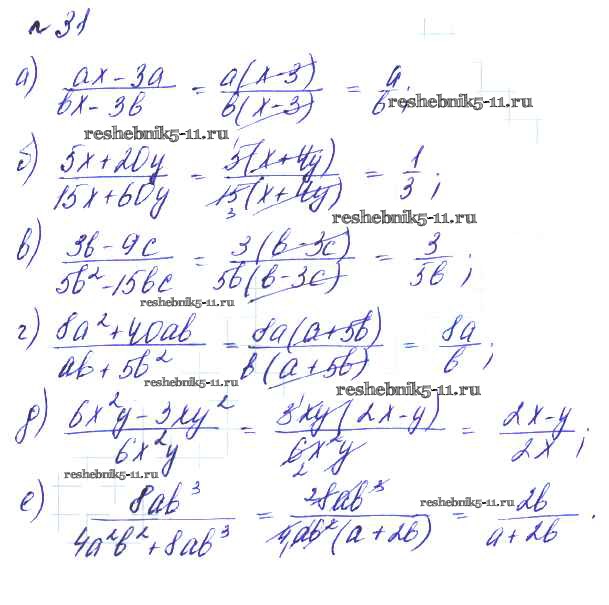 № 31
а) (ax − 3a)/(bx − 3b) = a(x−3)/b(x−3) = a/b;
reshebnik5-11.ru
reshebnik5-11.ru
б) (5x + 20y)/(15x + 60y) = 1 5(x+4y)/15(x+4y) 3 = 1/3;
reshebnik5-11.ru
в) (3b − 9c)/(5b² − 15bc) = 3(b−3c)/5b(b−3c) = 3/5b;
reshebnik5-11.ru
г) (8a² + 40ab)/(ab + 5b²) = 8a(a+5b)/b(a+5b) = 8a/b;
reshebnik5-11.ru
reshebnik5-11.ru
д) (6x²y − 3xy²)/6x²y = 3xy(2x−y)/6x²y 2 = (2x−y)/2x;
reshebnik5-11.ru
е) 8ab³/(4a²b² + 8ab³) = 2 8ab³/4ab²(a+2b) = 2b/(a+2b).
reshebnik5-11.ru